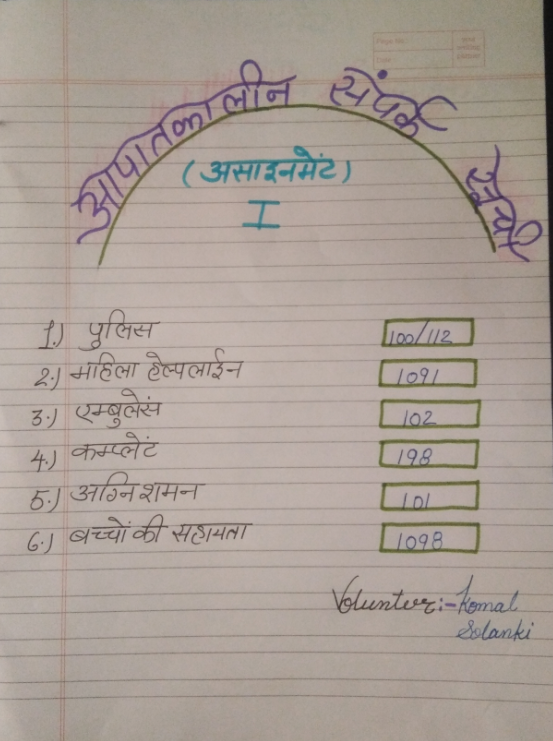 आपातकालीन संपर्क सूची
(असाइनमेंट)
I
1.) पुलिस 100/112
2.) महिला हेल्पलाईन 1091
3.) एम्बुलेंस 102
4.) कम्प्लेंट 198
5.) अग्निशमन 101
6.) बच्चों की सहायता 1098
Volunter:- Komal
Solanki